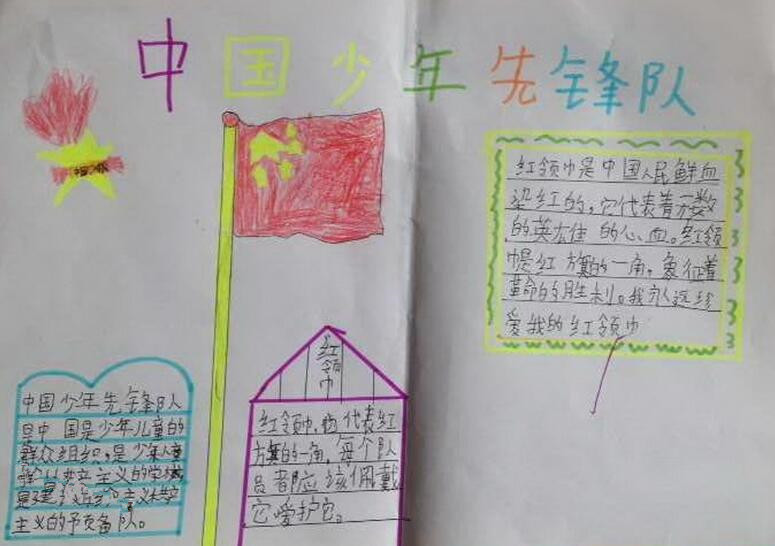 中国少年先锋队
红领巾是中国人民鲜血
染红的，它代表着无数
的英雄 的心血。红领
巾是红 旗的一角，象征着
革命的胜利。我永远珍
爱我的红领巾
红领巾
红领巾，代表红
旗的一角，每个队
员都应该佩戴
它爱护它。
中国少年先锋队
是中 国是少年儿童的
群众组织，是少年儿童
共产主义的学校
是建 共产
主义的预备队。